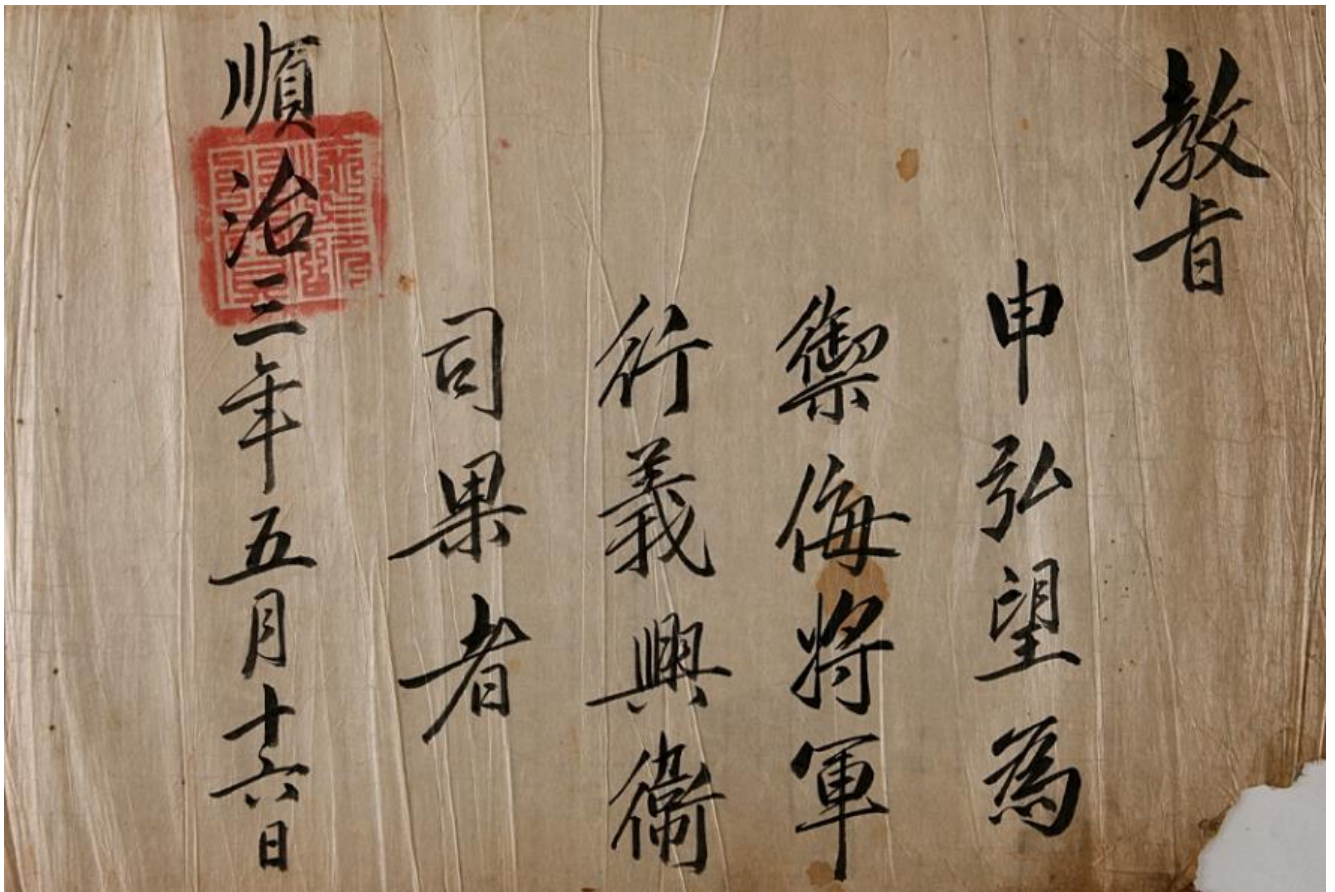 教旨
申弘望為
禦侮將軍
行義興衛
司果者
順治三年五月十六日